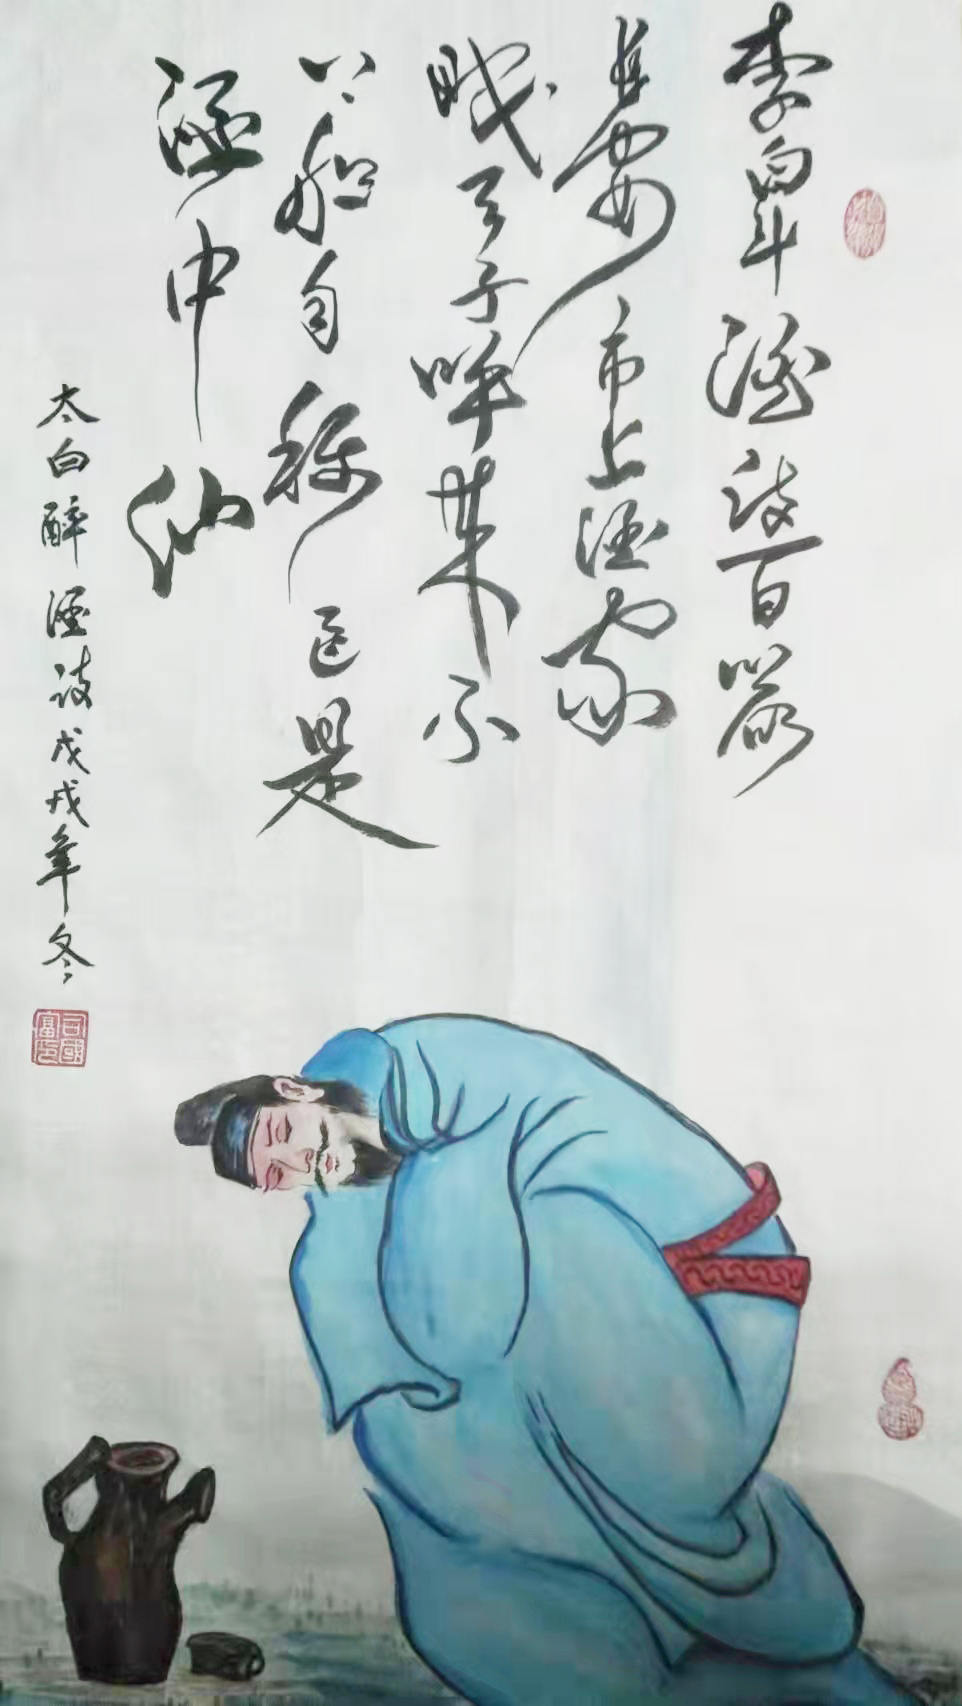 李白斗酒诗百篇
长安市上酒家
眠天子呼来不
上船自称臣是
酒中仙
太白醉酒诗戊戌年冬